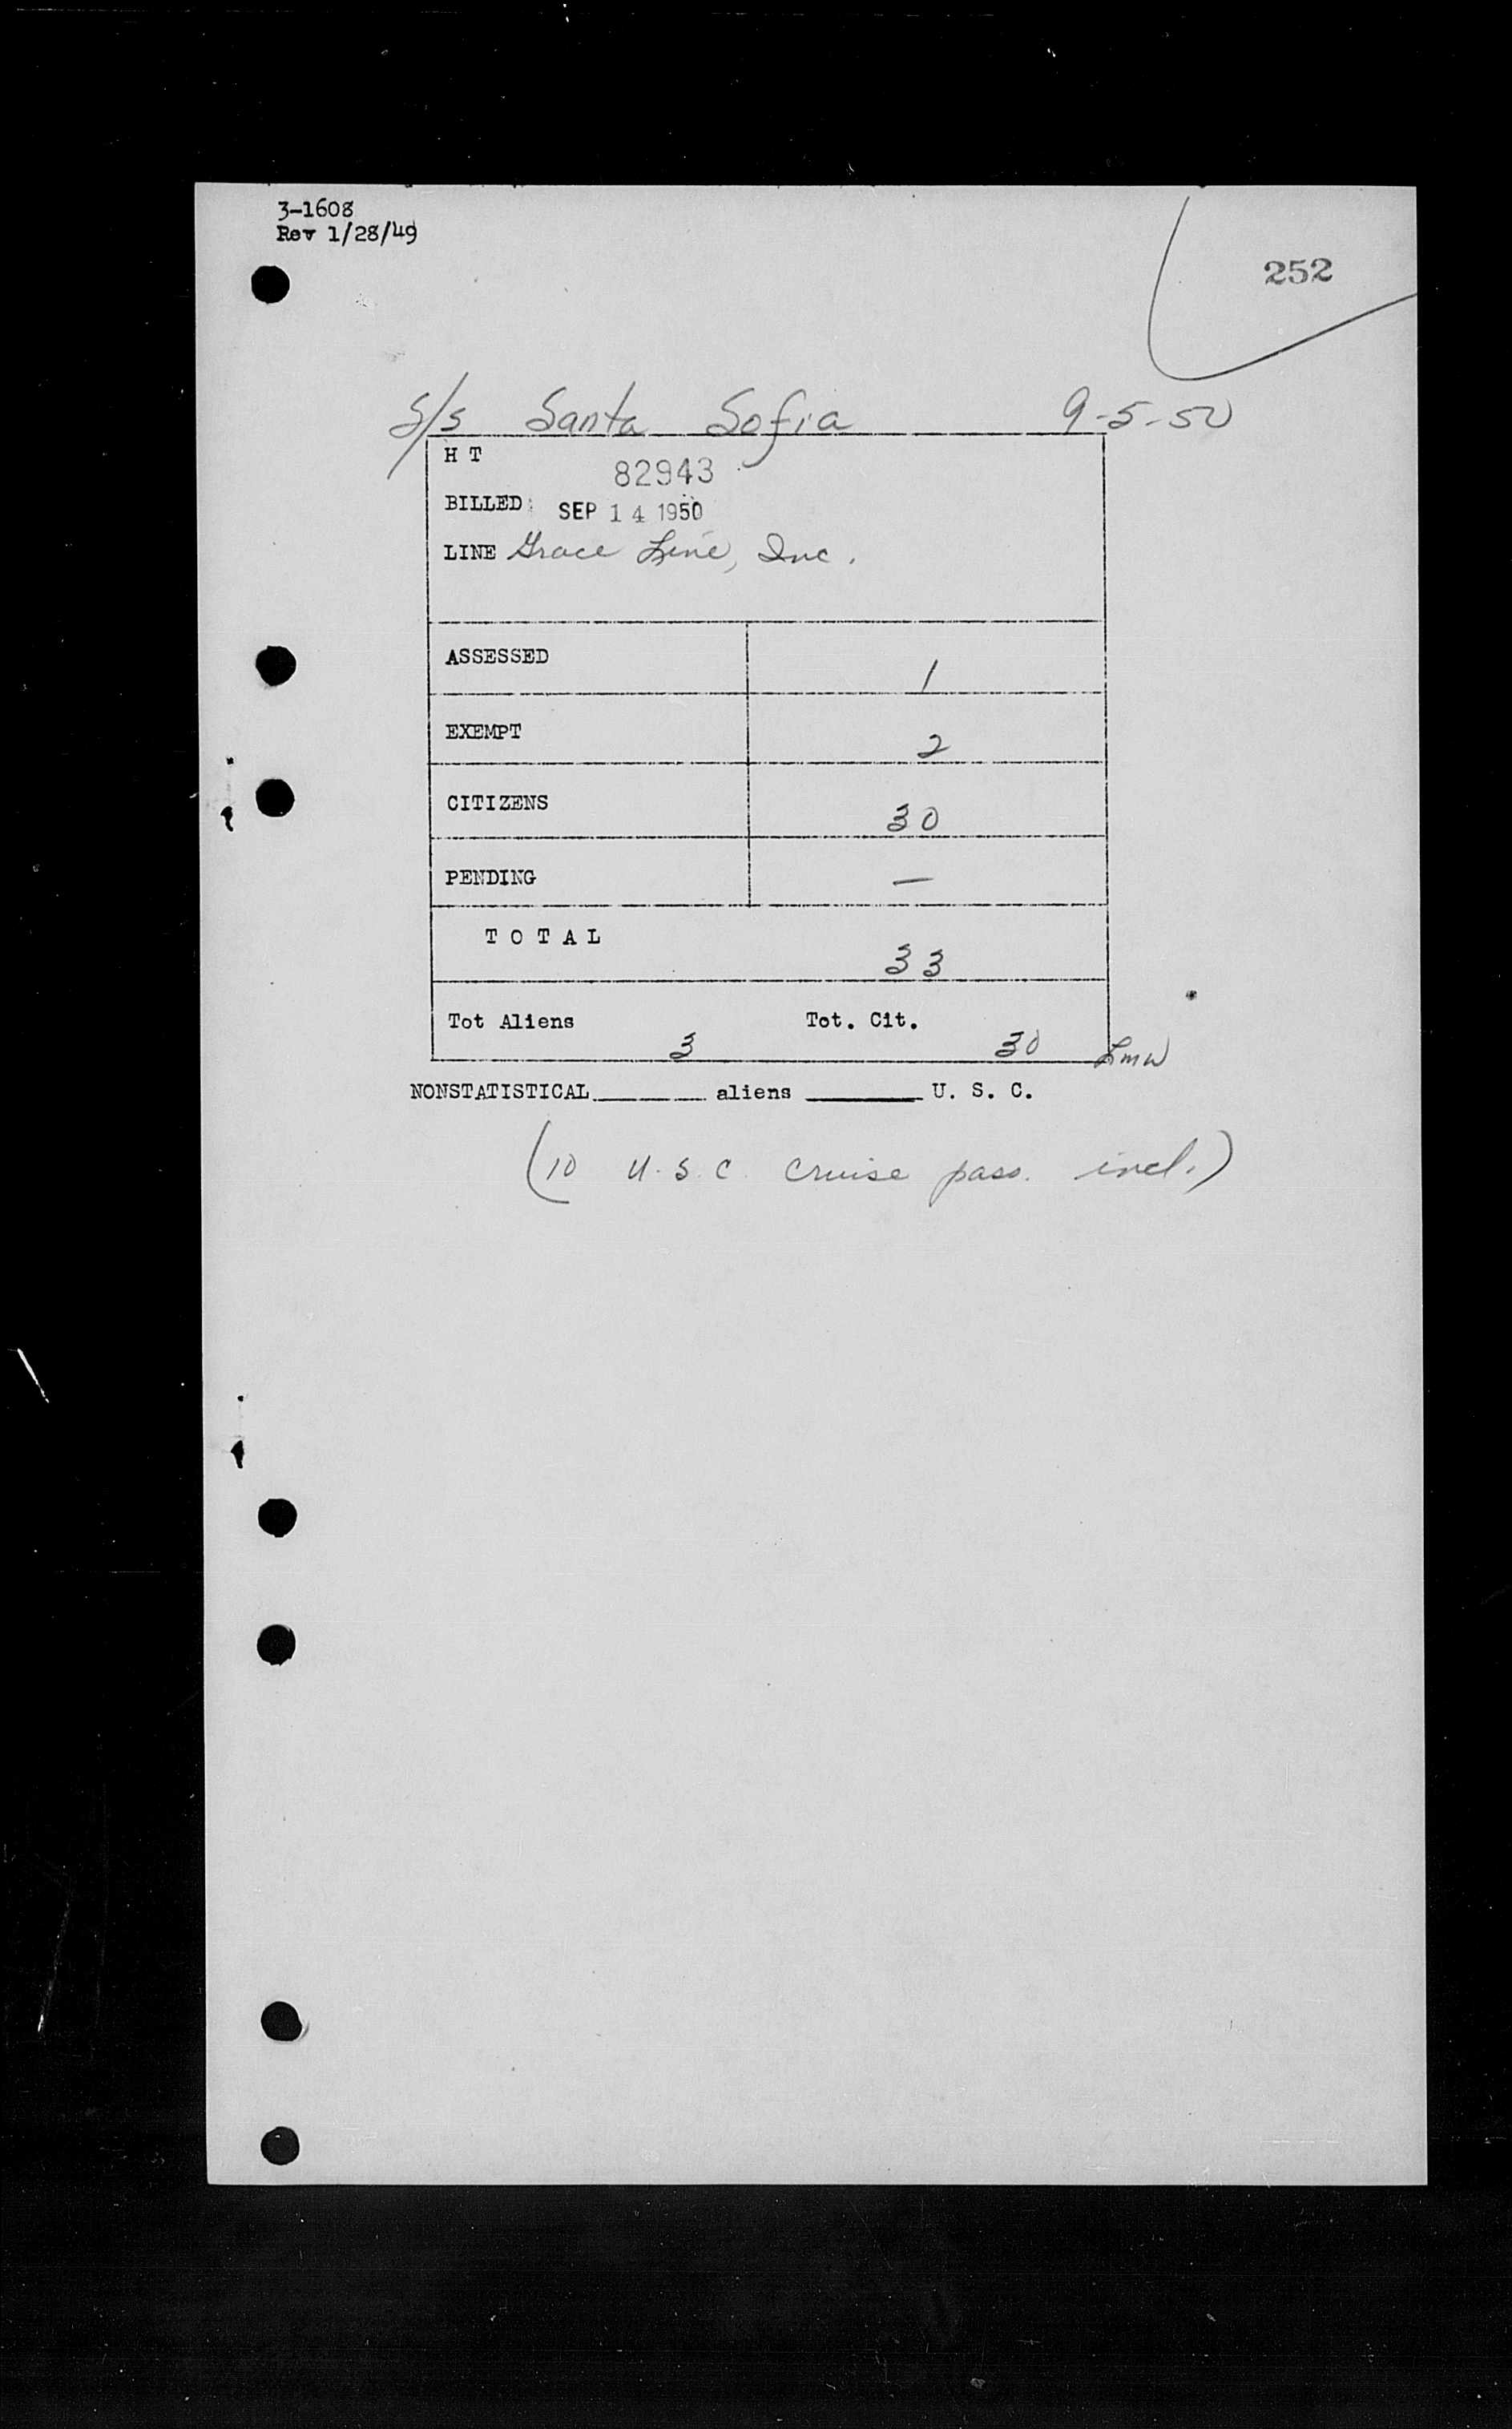 3-1608
Rev 1/28/49
252
S/s Santa Sofia 9-5-50
H T
82943
BILLED: SEP 14 1950
LINE Grace Line, Inc.
ASSESSED 1
EXEMPT 2
CITIZENS 30
PENDING —
T O T A L 33
Tot Aliens 3 Tot. Cit. 30 Lmw
NONSTATISTICAL______ aliens ______ U. S. C.
(10 U.S.C. cruise pass. incl.)